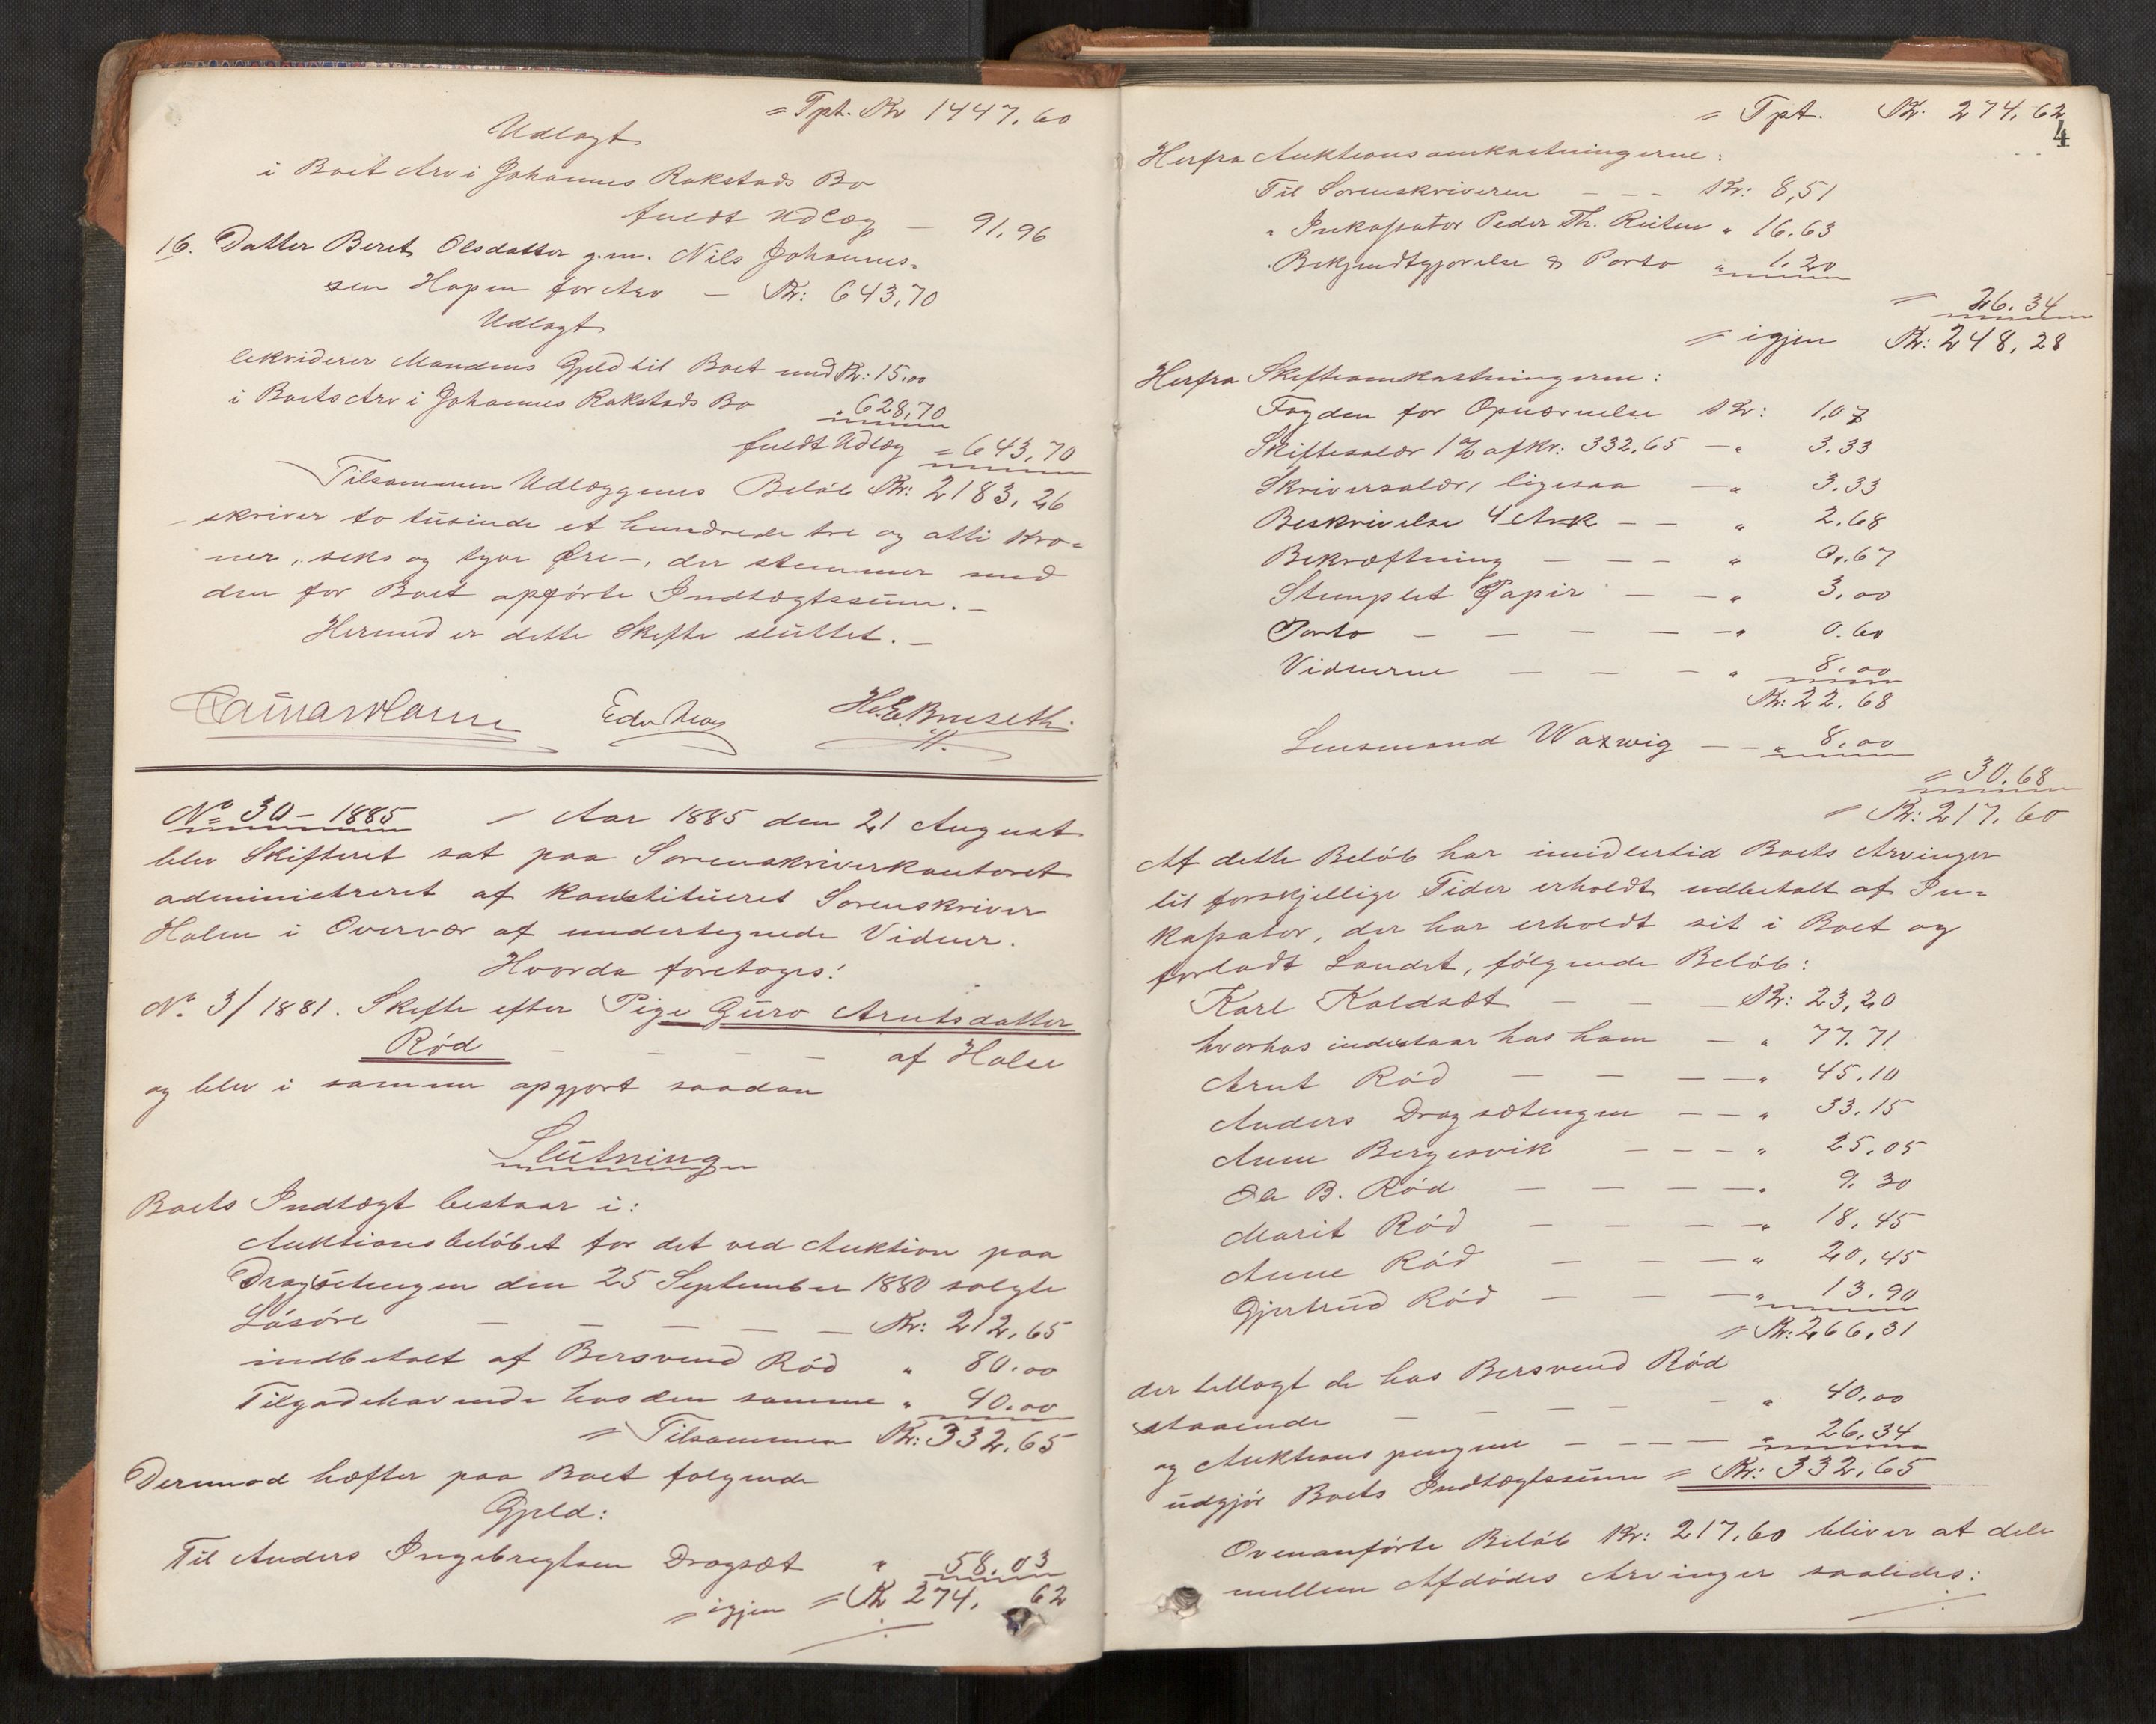 = Tpt. Kr 1447.60
Udlagt
i Boets Arv i Johannes Rakstads Bo
fuldt Udlæg — 91.96
16. Datter Beret Olsdatter g.m. Nils Johannes-
sen Hapen for Arv — Kr: 643,70
Udlagt
likviderer Mandens Gjeld til Boet med Kr: 15.00
i Boets Arv i Johannes Rakstads Bo „ 628,70
fuldt Udlæg = 643,70
Tilsammen Udlæggenes Beløb Kr: 2183,26
— skriver to tusinde et hundrede tre og otti Kro-
ner, seks og tyve Øre —, der stemmer med
den for Boet opførte Indtægtssum. —
Hermed er dette Skifte sluttet. —
Edv. Moy H.E. Bruseth
No 30 – 1885 / Aar 1885 den 21 August
blev Skifteret sat paa Sorenskriverkontoret
administreret af konstitueret Sorenskriver
Holm i Overvær af undertegnede Vidner.
Hvorda foretoges:
No. 3/1881. Skifte efter Pige Guro Arntsdatter
Rød — — — — af Halse
og blev i samme opgjort saadan
Slutning
Boets Indtægt bestaar i:
Auktionsbeløbet for det ved Auktion paa
Dragsetengen den 25 September 1880 solgte
Løsøre — — — — — Kr: 212,65
indbetalt af Bersvend Rød „ 80.00
Tilgodehavende hos den samme „ 40.00
= Tilsammen Kr: 332.65
Dermod hæfter paa Boet følgende
Gjeld:
Til Anders Ingebregtsen Dragsæt „ 58.03
= igjen = Kr 274, 62
= Tpt. Kr. 274,62
4
Herfra Auktionsomkostningerne:
Til Sorenskriveren — — — Kr: 8,51
„ Inkassator Peder Th. Reiten „ 16.63
Bekjendtgjørelse & Porto „ 1.20
= 26.34
= igjen Kr: 248,28
Herfra Skifteomkostningerne:
Fogden for Opnævnelse Kr: 1,07
Skiftesalær 1% af Kr: 332,65 — „ 3.33
Skriversalær, ligesaa — „ 3.33
Beskrivelse 4 Ark — — „ 2.68
Bekræftning — — — „ 0.67
Stemplet Papir — — „ 3,00
Porto — — — — — „ 0.60
Vidnerne — — — „ 8.00
Kr: 22.68
Lensmand Waxwig — — „ 8.00
= 30.68
= Kr: 217.60
Af dette Beløb har imidlertid Boets Arvinger
til forskjellige Tider erholdt udbetalt af In-
kassator, der har erholdt sit i Boet og
forladt Landet, følgende Beløb:
Karl Koldsæt — — — Kr: 23,20
hvorhos indestaar hos ham — „ 77.71
Arnt Rød — — — — „ 45.10
Anders Dragsætengen — — „ 33.15
Anne Bergesvik — — — „ 25.05
Ole B. Rød — — — — „ 9.30
Marit Rød — — — — „ 18,45
Anne Rød — — — „ 20,45
Gjertrud Rød — — — „ 13.90
= Kr: 266,31
der tillagt de hos Bersvend Rød
staaende — — — — — „ 40,00
og Auktionspengene — — — „ 26,34
udgjør Boets Indtægtssum = Kr: 332.65
Ovenanførte Beløb Kr: 217.60 bliver at dele
mellem Afdødes Arvinger saaledes: